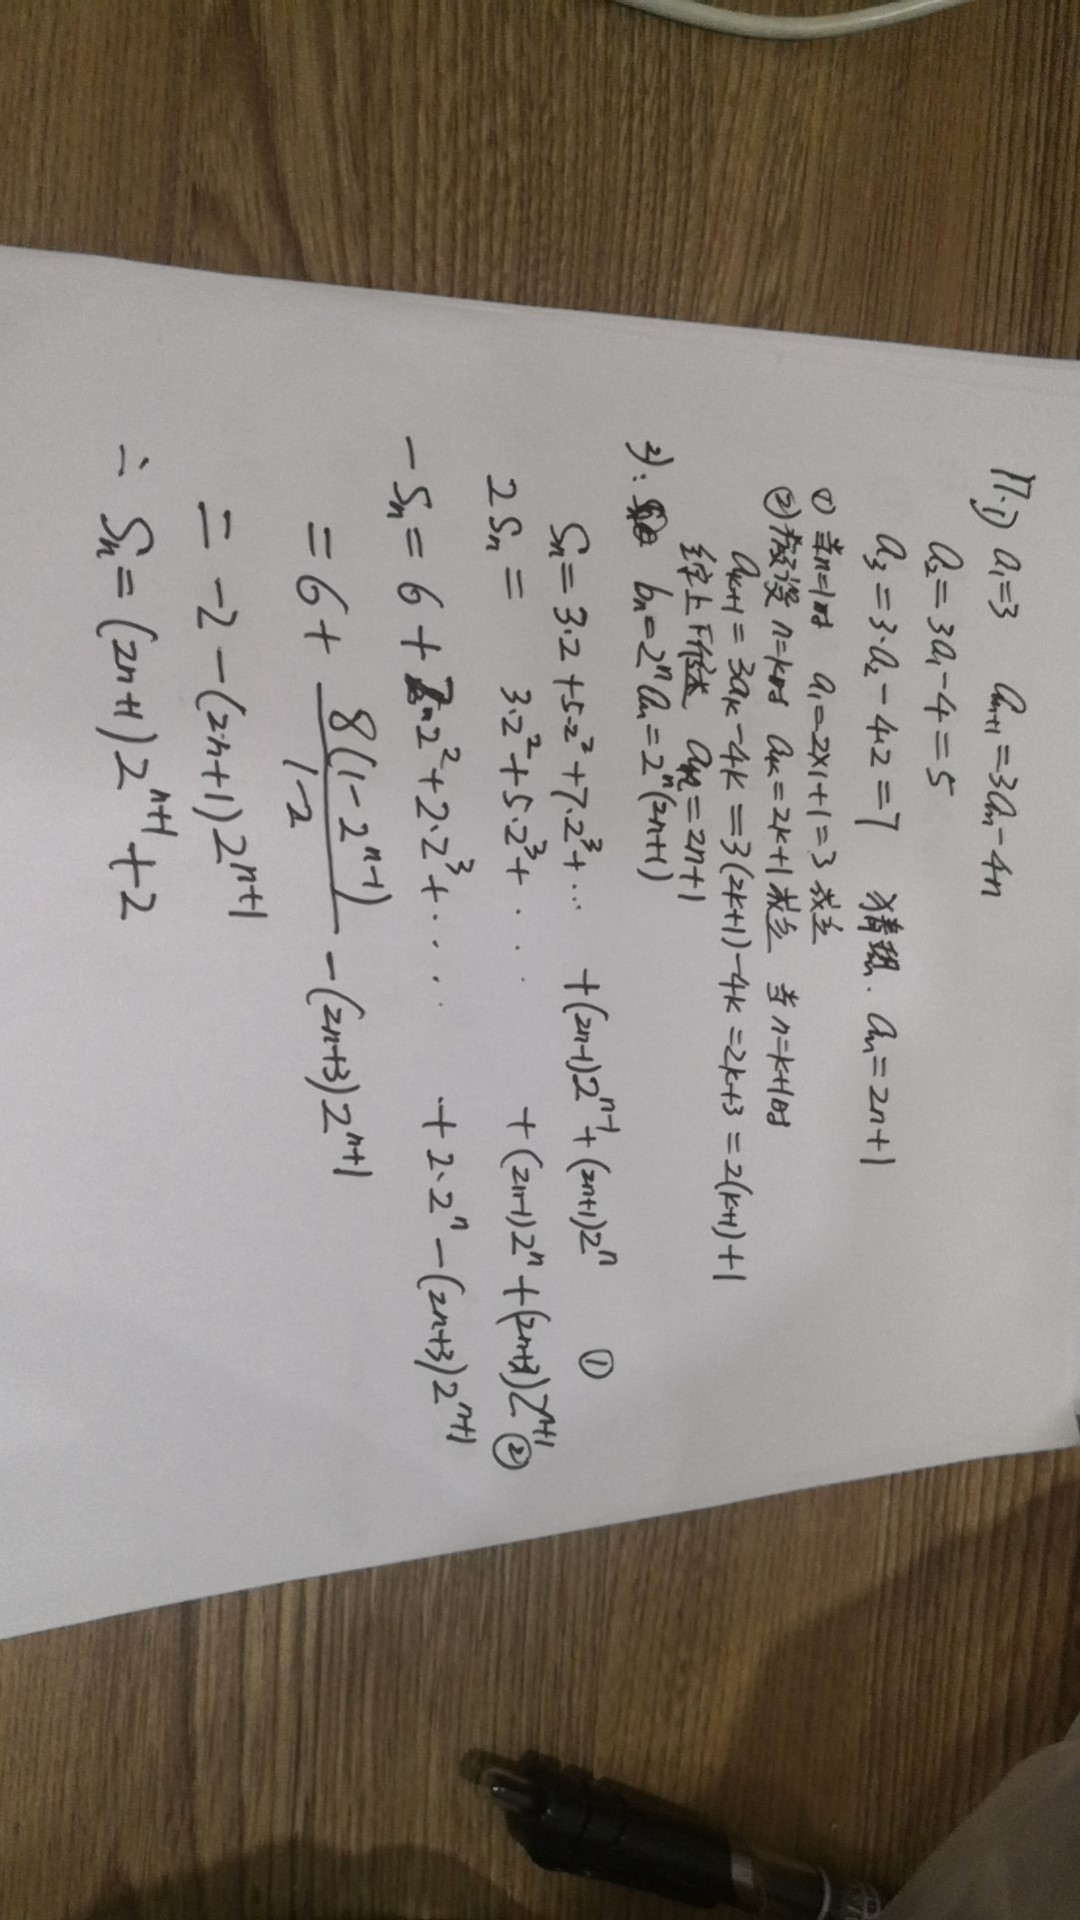 17.1) a₁=3 aₙ₊₁=3aₙ-4n
a₂=3a₁-4=5
a₃=3·a₂-4·2=7 猜想. aₙ=2n+1
① 当n=1时 a₁=2×1+1=3 成立
②假设 n=k时 aₖ=2k+1成立 当n=k+1时
aₖ₊₁=3aₖ-4k=3(2k+1)-4k=2k+3=2(k+1)+1
综上所述 aₙ=2n+1
2): bₙ=2ⁿaₙ=2ⁿ(2n+1)
Sₙ=3·2+5·2²+7·2³+… +(2n-1)2ⁿ⁻¹+(2n+1)2ⁿ ①
2Sₙ= 3·2²+5·2³+ ... +(2n-1)2ⁿ+(2n+3)2ⁿ⁺¹ ②
-Sₙ=6+2·2²+2·2³+.... +2·2ⁿ-(2n+3)2ⁿ⁺¹
=6+8(1-2ⁿ⁻¹)/1-2-(2n+3)2ⁿ⁺¹
=-2-(2n+1)2ⁿ⁺¹
∴Sₙ=(2n+1)2ⁿ⁺¹+2